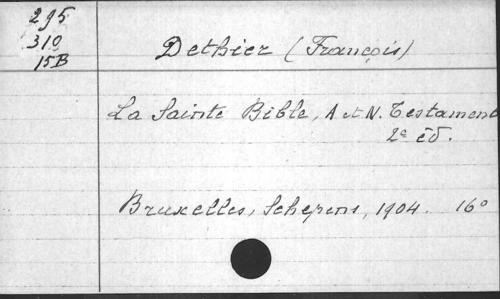 295
310
15B
Dethier (François)
La Sainte Bible, A et N. Testament
2e éd.
Bruxelles, Schepens, 1904. 16°